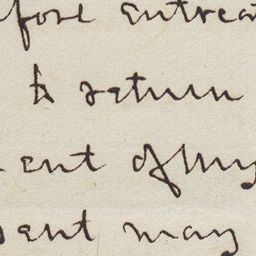 fore entreat
to return
ent of my
sent may